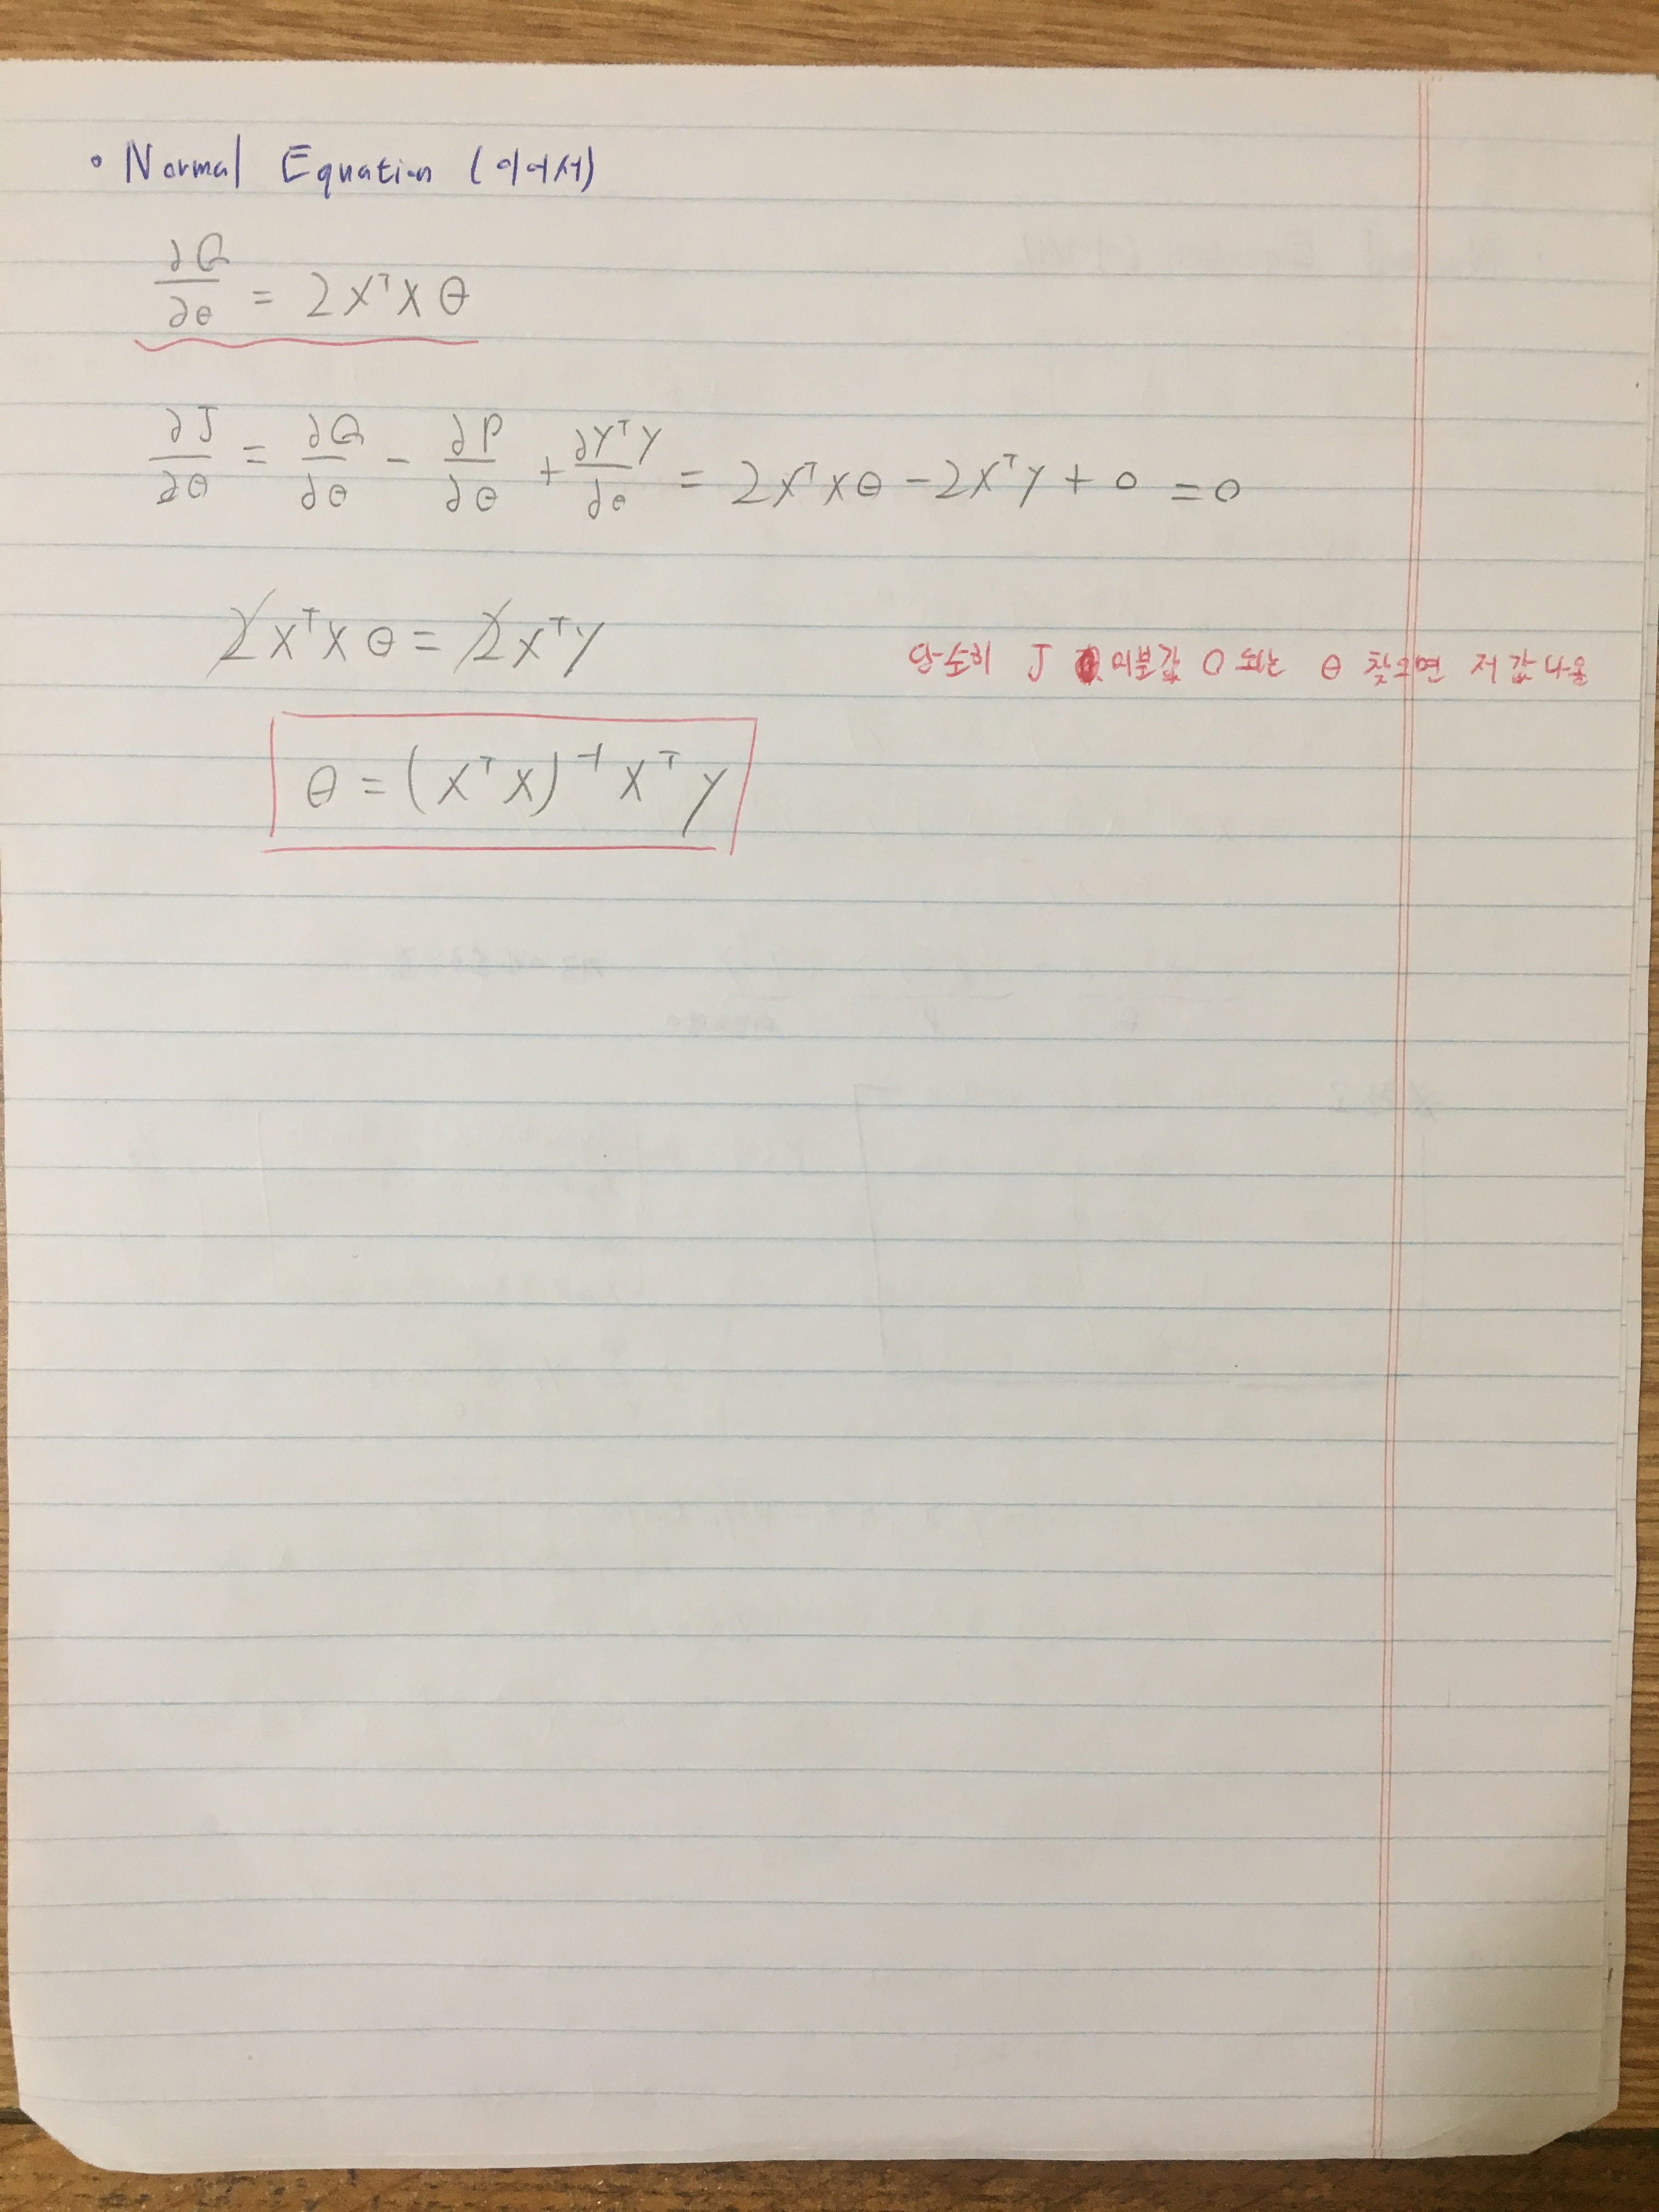 • Normal Equation (이어서)
∂Q/∂θ = 2XᵀXθ
∂J/∂θ = ∂Q/∂θ - ∂P/∂θ + ∂YᵀY/∂θ = 2XᵀXθ - 2XᵀY + 0 = 0
2XᵀXθ = 2XᵀY
단순히 J 미분값 0 되는 θ 찾으면 저 값 나옴
θ = (XᵀX)⁻¹XᵀY